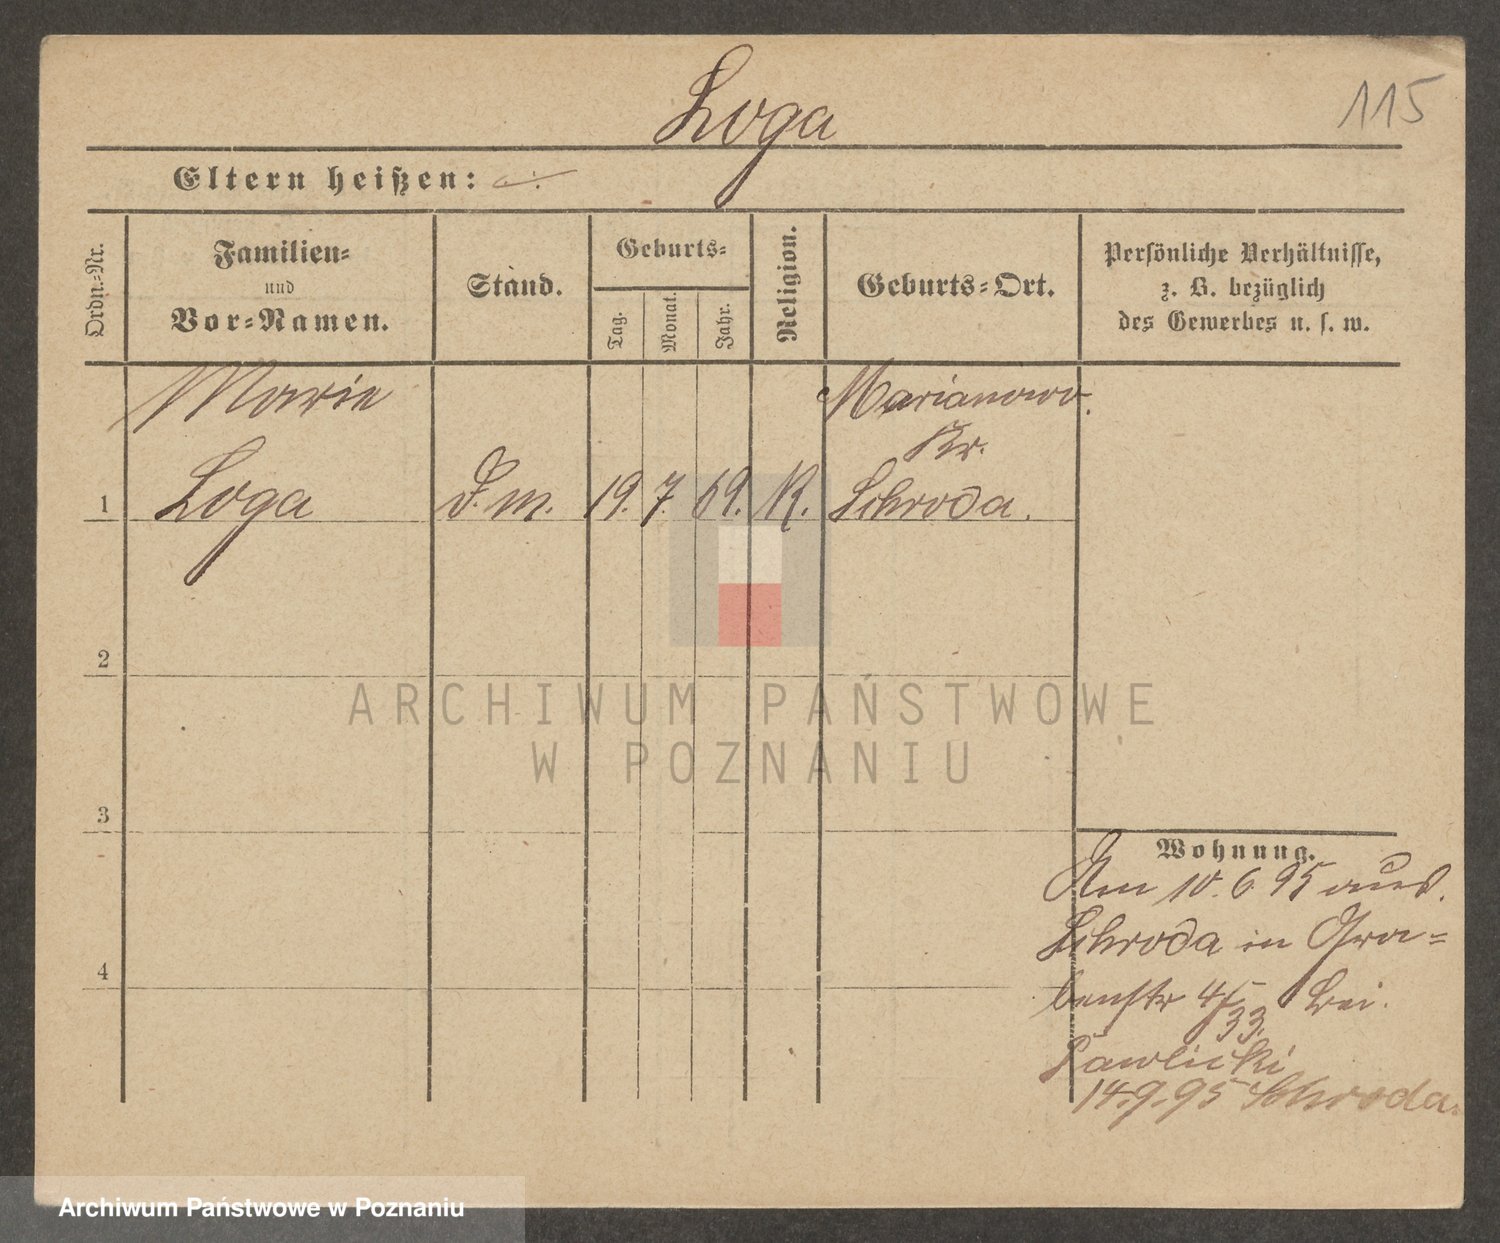 Loga
115
Eltern heißen:
Ordn.-Nr.
Familien-
und
Vor-Namen.
Stand.
Geburts-
Tag.
Monat.
Jahr.
Religion.
Geburts-Ort.
Persönliche Verhältnisse,
z. B. bezüglich
des Gewerbes u. s. w.
Marie
Marianowo.
Kr.
1 Loga D. m. 19. 7. 69. K. Schroda.
2
3
4
Wohnung.
Am 10. 6 95 aus.
Schroda in Gra-
benstr 4/5 bei.
33.
Pawlicki
14.9.95 Schroda.
ARCHIWUM PAŃSTWOWE
W POZNANIU
Archiwum Państwowe w Poznaniu